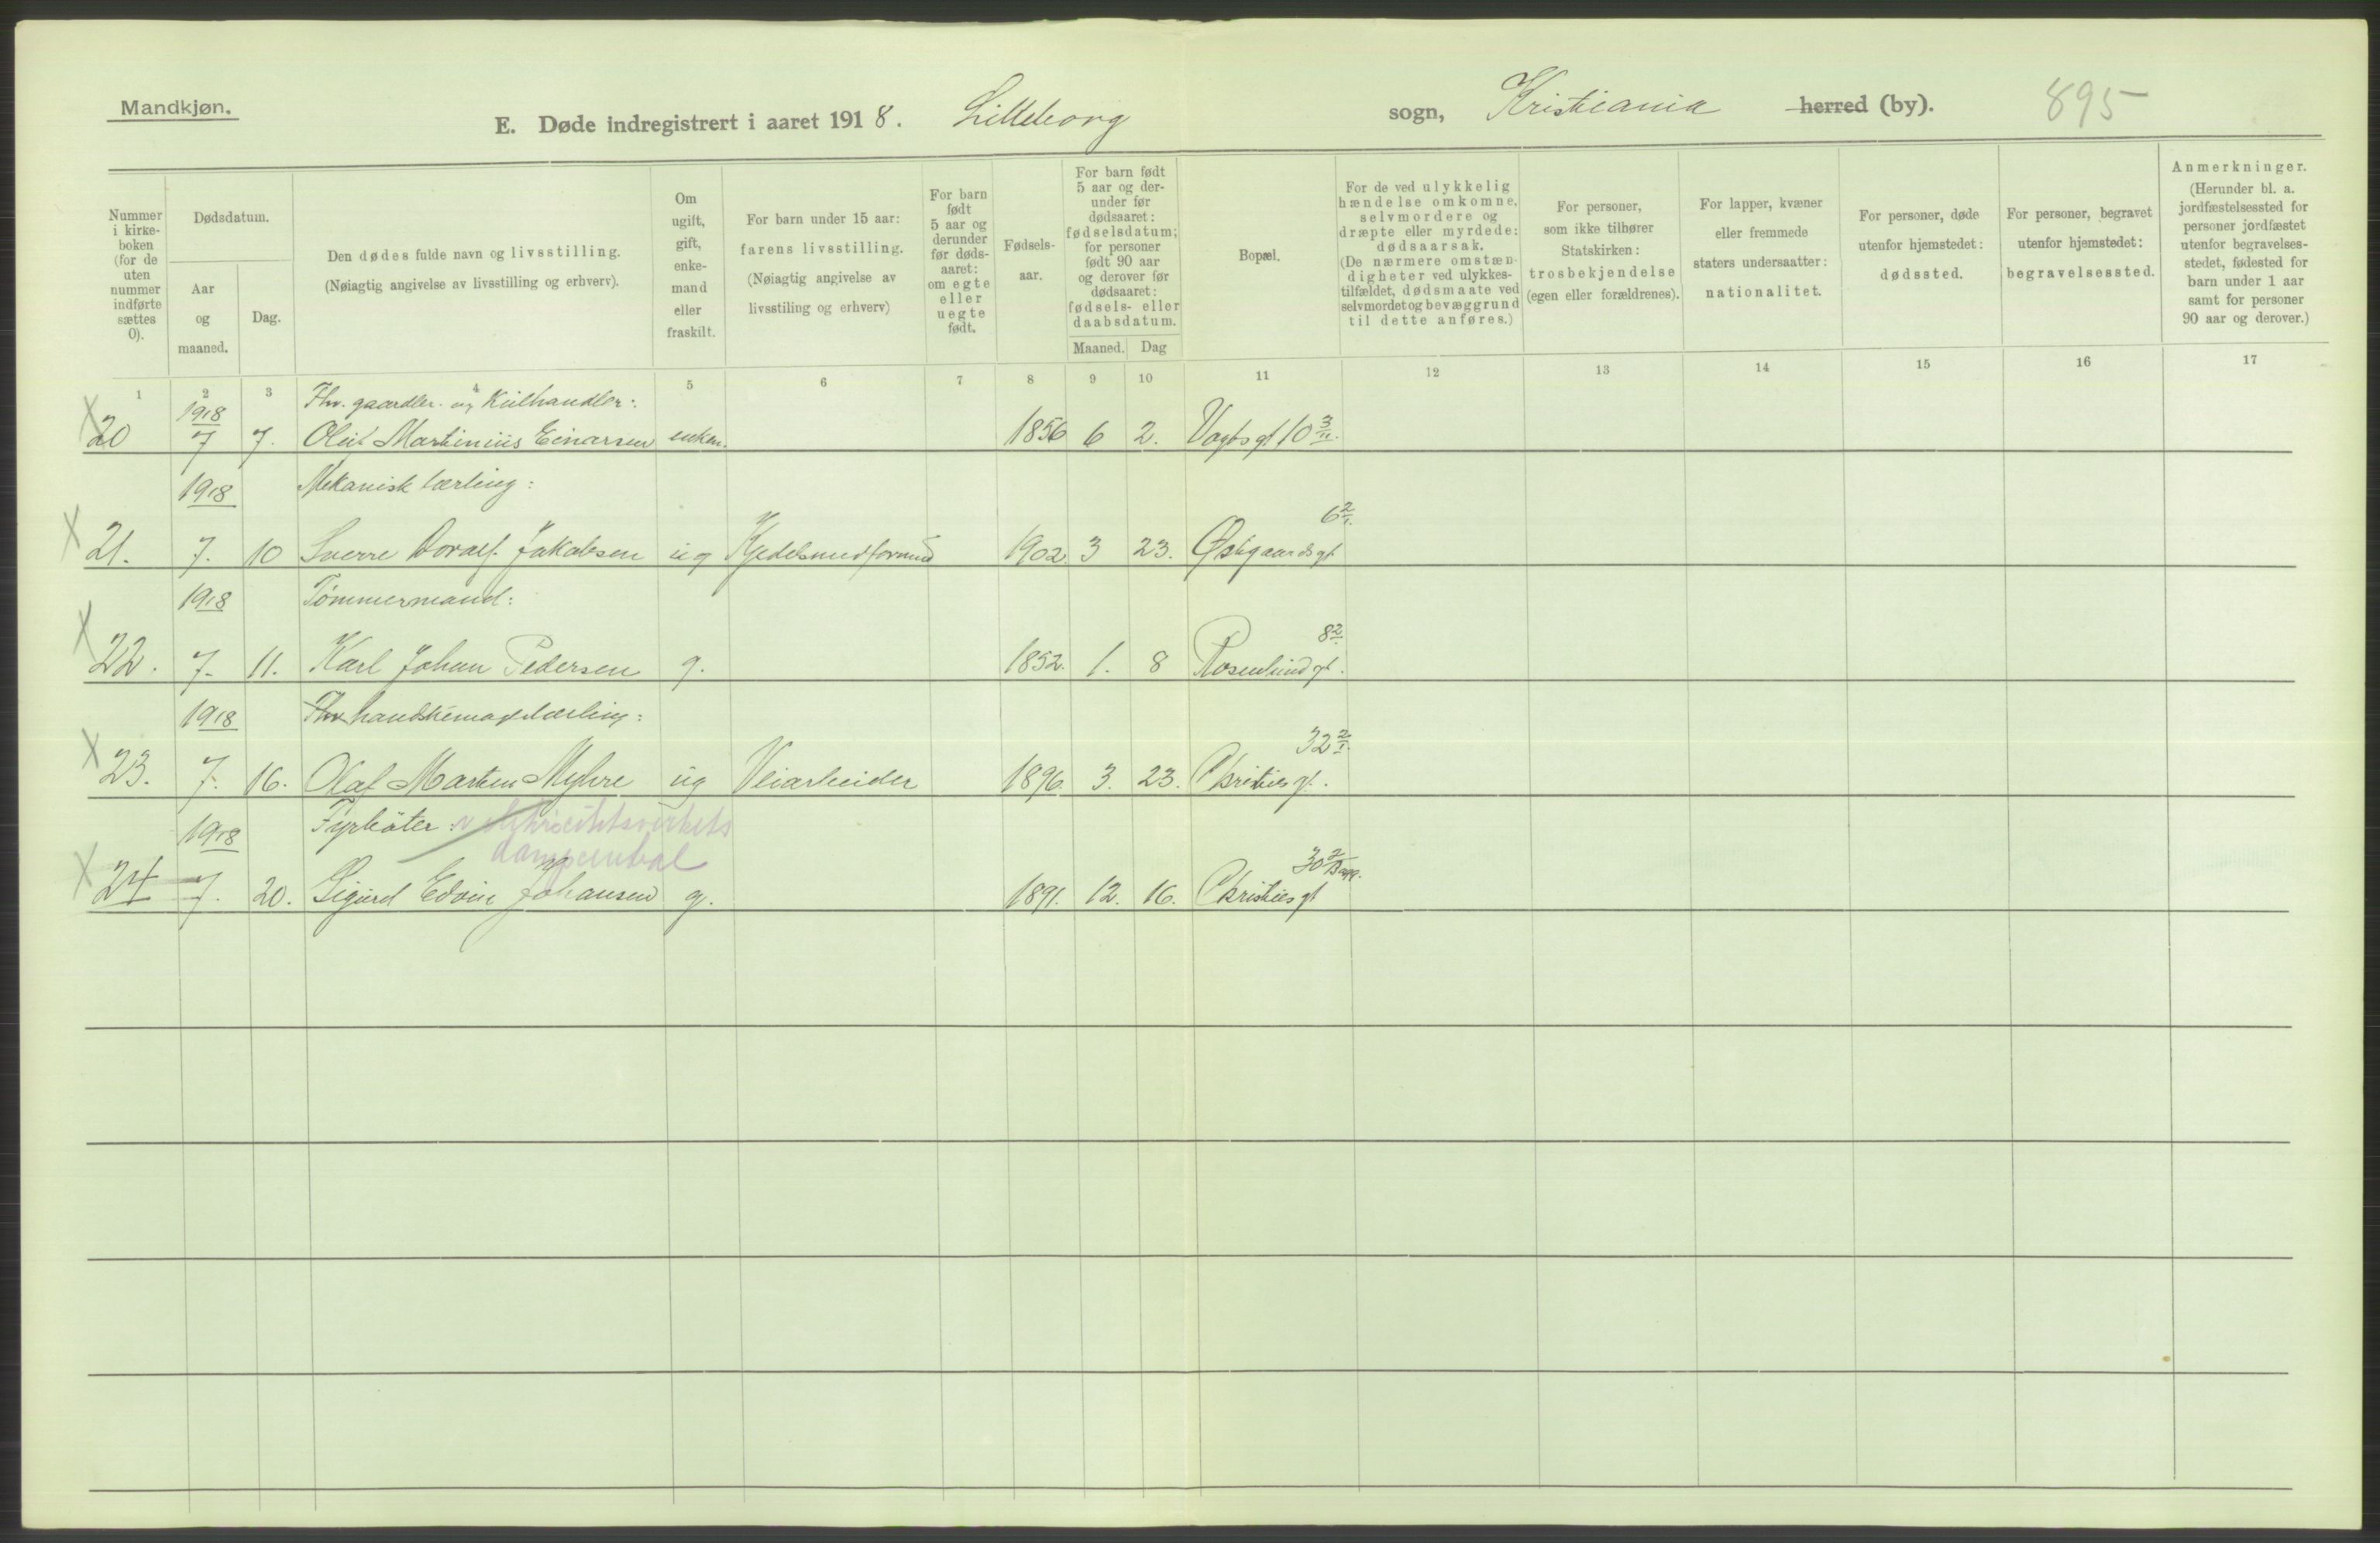 Mandkjøn.
E. Døde indregistrert i aaret 1918. Lilleborg sogn, Kristiania herred (by). 895
Nummer i kirkeboken (for de uten nummer indførte sættes 0).
Dødsdatum.
Aar og maaned.
Dag.
Den dødes fulde navn og livsstilling.
(Nøiagtig angivelse av livsstilling og erhverv).
Om ugift, gift, enkemand eller fraskilt.
For barn under 15 aar: farens livsstilling.
(Nøiagtig angivelse av livsstiling og erhverv)
For barn født 5 aar og derunder før dødsaaret: om egte eller uegte født.
Fødselsaar.
For barn født 5 aar og derunder før dødsaaret: fødselsdatum; for personer født 90 aar og derover før dødsaaret: fødsels- eller daabsdatum.
Maaned. Dag
Bopæl.
For de ved ulykkelig hændelse omkomne, selvmordere og dræpte eller myrdede: dødsaarsak.
(De nærmere omstændigheter ved ulykkestilfældet, dødsmaate ved selvmordet og bevæggrund til dette anføres.)
For personer, som ikke tilhører Statskirken: trosbekjendelse (egen eller forældrenes).
For lapper, kvæner eller fremmede staters undersaatter: nationalitet.
For personer, døde utenfor hjemstedet: dødssted.
For personer, begravet utenfor hjemstedet: begravelsessted.
Anmerkninger.
(Herunder bl. a. jordfæstelsessted for personer jordfæstet utenfor begravelsesstedet, fødested for barn under 1 aar samt for personer 90 aar og derover.)
1 2 3 4 5 6 7 8 9 10 11 12 13 14 15 16 17
1918 Fhv. gaardler. og Kulhandler:
X 20 7 7. Oluf Martinius Einarsen enkem. 1856 6 2. Vogtsgt 10 3/11.
1918 Mekanisk lærling: 6 2/1.
X 21. 7. 10 Sverre Toralf Jakobsen ug Kjedelsmedformd 1902 3 23. Østgaardsgt
1918 Tømmermand: 8 2/1
X 22. 7. 11. Karl Johan Pedersen g. 1852. 1. 8 Rosenlundgt.
1918 Fhv handskemagerlærling: 32 2/1.
X 23. 7. 16. Olaf Marten Myhre ug Veiarbeider 1896. 3. 23. Christiesgt.
1918 Fyrbøter v elektricitetsverkets
dampcentral 30 2/Bopg.
X 24 7. 20. Sigurd Edvin Johansen g. 1891. 12. 16. Christiesgt